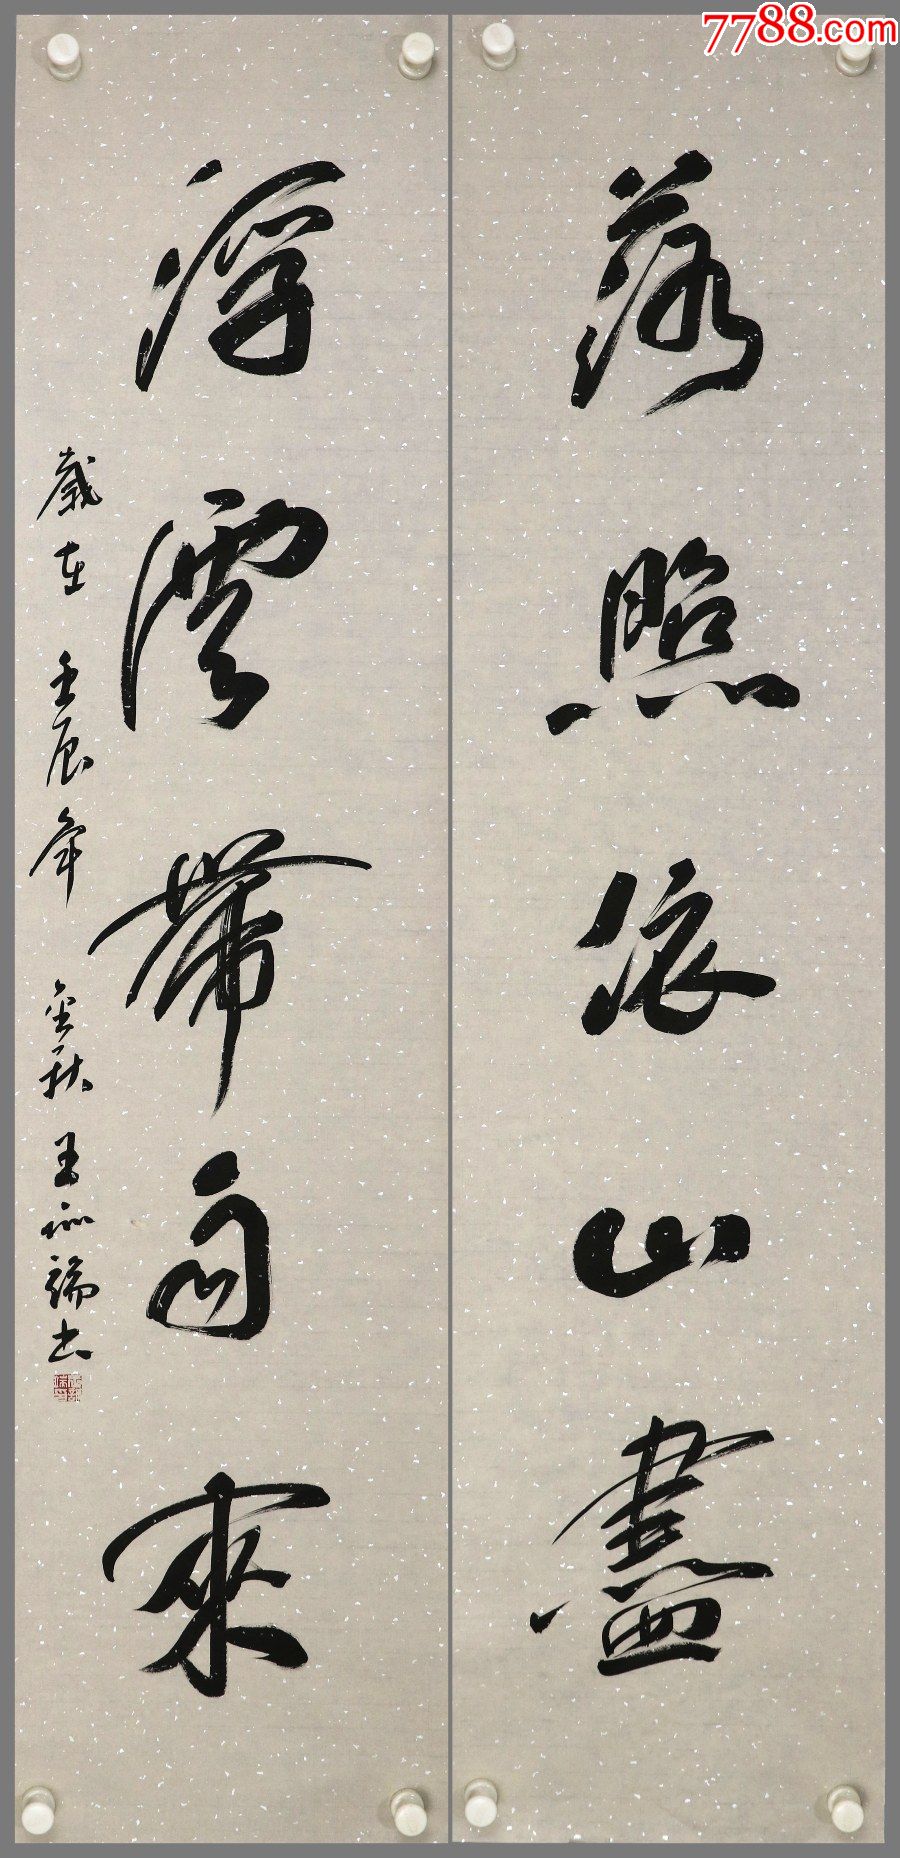 落照依山盡
浮雲帶雨來
歲在壬辰年金秋王端书
7788.com